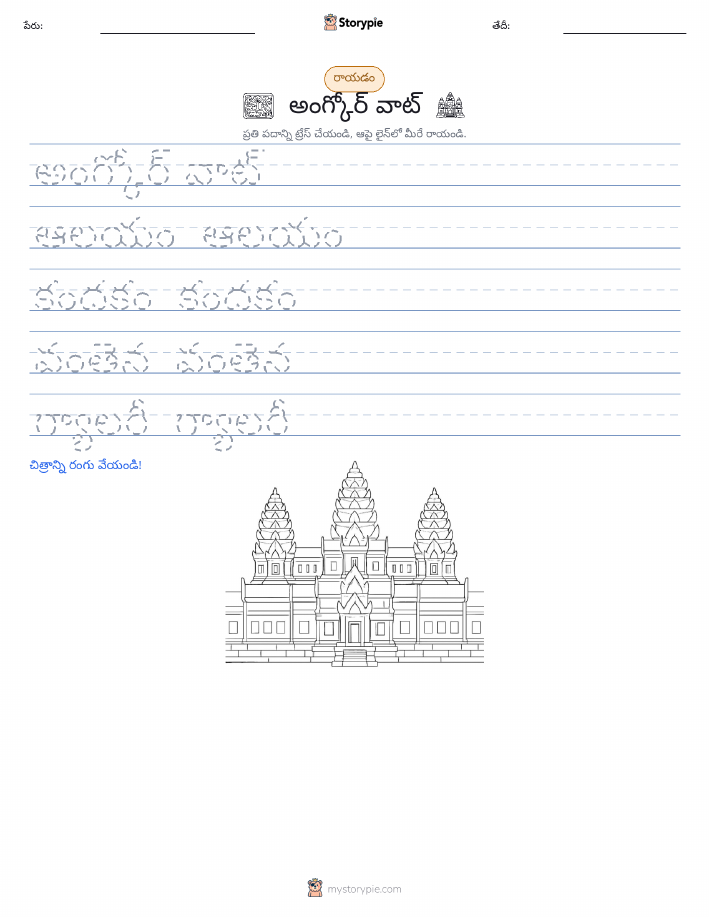 పేరు:
Storypie
తేదీ:
రాయడం
అంగ్కోర్ వాట్
ప్రతి పదాన్ని ట్రేస్ చేయండి, ఆపై లైన్‌లో మీరే రాయండి.
అంగ్కోర్ వాట్
ఆలయం ఆలయం
కందకం కందకం
వంతెన వంతెన
గ్యాలరీ గ్యాలరీ
చిత్రాన్ని రంగు వేయండి!
mystorypie.com